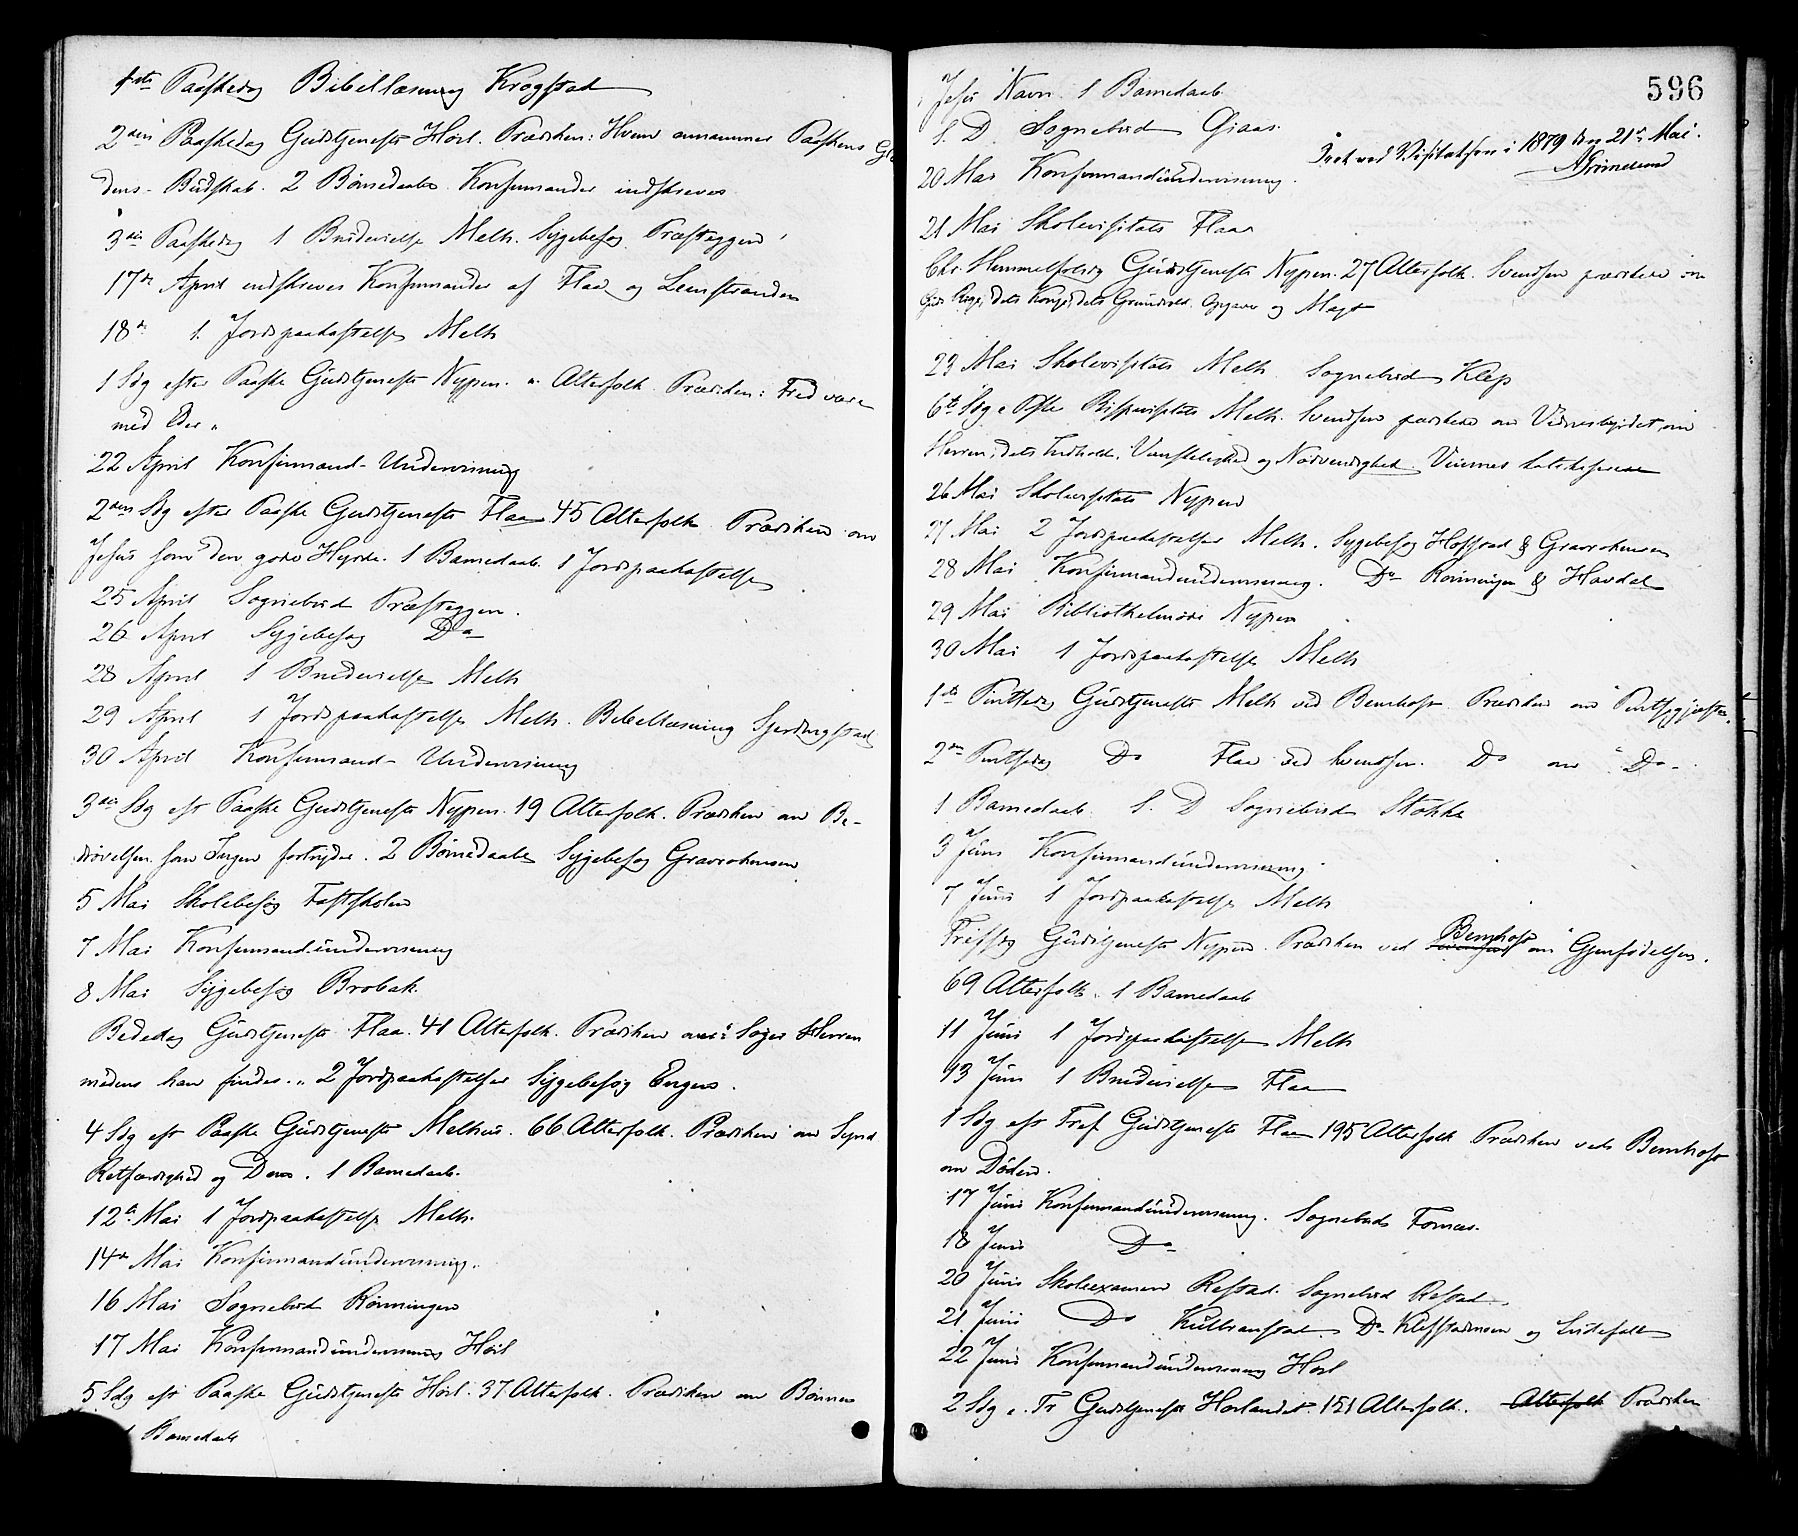 1ste Paaskedag Bibellæsning Krogstad
2den Paaskedag Gudstjeneste Hösl. Prædiken: Hvem annammer Paaskens Glæ
dens-Budskab. 2 Börnedaabe. Konfirmander indskreves
3die Paaskedag 1 Brudevielse Melh. Sygebesög Præsteggen
17de April indskreves Konfirmander af Flaa og Leinstranden
18de 1. Jordpaakastelse Melh
1 Sdg efter Paaske Gudstjeneste Nypen. Alterfolk. Prædiken: Fred være
med Eder"
22 April Konfirmand-Undervisning
2den Sdg efter Paaske Gudstjeneste Flaa 45 Alterfolk Prædiken om
Jesus som den gode Hyrde. 1 Barnedaab. 1 Jordpaakastelse
25 April Sognebud Præsteggen.
26 April Sygebesög Do
28 April 1 Brudevielse Melh
29 April 1 Jordpaakastelse Melh. Bibellæsning Gjerdingstad
30 April Konfirmand-Undervisning
3die Sdg eft Paaske Gudstjeneste Nypen. 19 Alterfolk. Prædiken om Be-
drövelsen som Ingen fortryder. 2 Börnedaabe Sygebesög Gravrohansen
5 Mai Skolebesög Fastskolen
7 Mai Konfirmandundervisning
8 Mai Sygebesög Brobak.
Bededag Gudstjeneste Flaa. 41 Alterfolk. Prædiken over: Söger Herren
medens han findes." 2 Jordpaakastelser Sygebesög Engen.
4 Sdg eft Paaske Gudstjeneste Melhus. 66 Alterfolk. Prædiken om Synd
Retfærdighed og Dom. 1 Barnedaab.
12te Mai 1 Jordpaakastelse Melh.
14de Mai Konfirmandundervisning.
16 Mai Sognebud Rönningen
17 Mai Konfirmandundervisning Hösl
5 Sdg eft Paaske Gudstjeneste Hösl. 37 Alterfolk. Prædiken om Bönnen
1 Barnedaab
596
i Jesu Navn 1 Barnedaab
S. D. Sognebud Gjaas.
Seet ved Visitatsen i 1879 den 21de Mai.
AGrimelund
20 Mai Konfirmandundervisning.
21 Mai Skolevisitats Flaa
Chr. Himmelfartsdg Gudstjeneste Nypen. 27 Alterfolk. Svendsen prædikede om
Guds Rige, dets Konge, dets Grundvold, Opgave og Magt
23 Mai Skolevisitats Melh. Sognebud Klep
6te Sdg e Paaske Bispevisitats Melh. Svendsen prædikede om Vidnesbyrdet om
Herren, dets Indhold, Vanskelighed og Nödvendighed.
26 Mai Skolevisitats Nypen
27 Mai 2 Jordpaakastelser Melh. Sygebesög Hofstad & Gravrohansen
28 Mai Konfirmandundervisning. Do Rönningen & Havdal
29 Mai Bibliothekmöde Nypen
30 Mai 1 Jordpaakastelse Melh
1ste Pintsedag Gudstjeneste Melh ved Bernhoft Prædiken om "Pintsegjæsten.
2den Pintsedag Do Flaa ved Svendsen. Do om "Do-
1 Barnedaab. S. D Sognebud Stokke
3 Juni Konfirmandundervisning
7 Juni 1 Jordpaakastelse Melh
Trefsdg Gudstjeneste Nypen. Prædiken ved Bernhoft om "Gjenfödelsen.
69 Alterfolk. 1 Barnedaab
11 Juni 1 Jordpaakastelse Melh
13 Juni 1 Brudevielse Flaa
1 Sdg eft Tref Gudstjeneste Flaa 195 Alterfolk Prædiken ved Bernhoft
om Döden.
17 Juni Konfirmandundervisning. Sognebud Fornes.
18 Juni Do
20 Juni Skoleexamen Refstad. Sognebud Refstad.
21 Juni Do Kulbranstad. Do og
22 Juni Konfirmandundervisning Hösl
2 Sdg e. Tr Gudstjeneste Höslandet. 151 Alterfolk. Alterfolk Prædiken